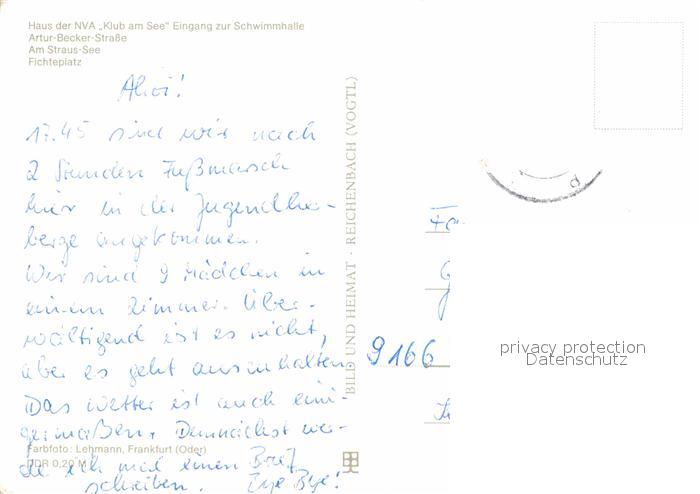 Haus der NVA „Klub am See" Eingang zur Schwimmhalle
Artur-Becker-Straße
Am Straus-See
Fichteplatz
Ahoi!
17.45 sind wir nach
2 Stunden Fußmarsch
hier in der Jugendher-
berge angekommen.
Wir sind 9 Mädchen in
einem Zimmer. Über-
wältigend ist es nicht,
aber es geht auszuhalten.
Das Wetter ist auch eini-
germaßen. Demnächst wer-
de ich mal einen Brief
schreiben. Bye Bye!
Farbfoto: Lehmann, Frankfurt (Oder)
DDR 0,20 M
BILD UND HEIMAT · REICHENBACH (VOGTL)
9166
privacy protection
Datenschutz